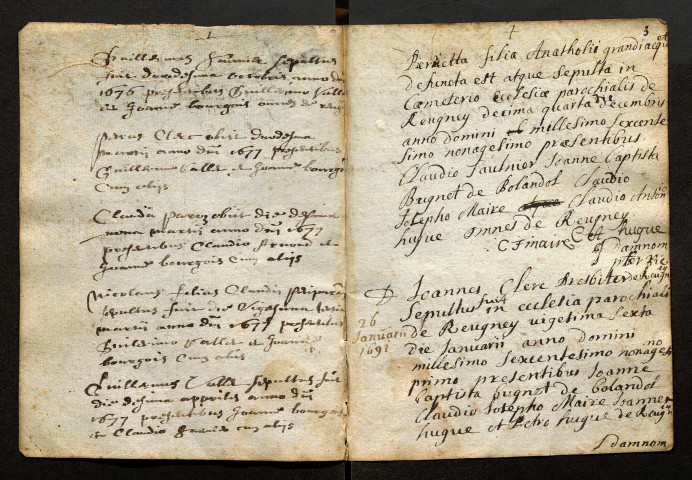 Guillermus sepultus
fuit duodesima anno dni
1676 presentibus Guillermo Vallet
et Joanne bourgois
Clerc obiit duodesima
martii anno dni 1677 presentibus
Guillermo Vallet et Joanne bourgois
cum aliis
Claudia obiit die desima
nona martii anno dni 1677
presentibus Claudio et
Joanne bourgois cum aliis
Nicolaus filius Claudii
sepultus fuit die Vigesima
martii anno dni 1677 presentibus
Guillermo Vallet et Joanne
bourgois cum aliis
Guillermus Vallet sepultus fuit
die desima apprilis anno dni
1677 presentibus Joanne bourgois
et Claudio cum aliis
3
Pierretta filia Anatholii grandiacquet
defuncta est atque sepulta in
Cæmeterio ecclesiæ parochialis de
Reugney decima quarta decembris
anno domini millesimo sexcente
simo nonagesimo præsentibus
Claudio Saulnier Joanne Baptista
Bugnet de Bolandoz Claudio
Josepho Maire Claudio Antonio
hugue omnes de Reugney
CJmaire Et hugue
Jdamnom
26
Januarii
1691
Joannes Clerc Presbiter de Reugney
Sepultus fuit in ecclesia parochiali
de Reugney vigesima sexta
die Januarii anno domini
millesimo sexcentesimo nonagesimo
primo presentibus Joanne
Baptista bugnet de bolandoz
Claudio Josepho Maire Joanne
hugue et Petro hugue de Reugney
Jdamnom